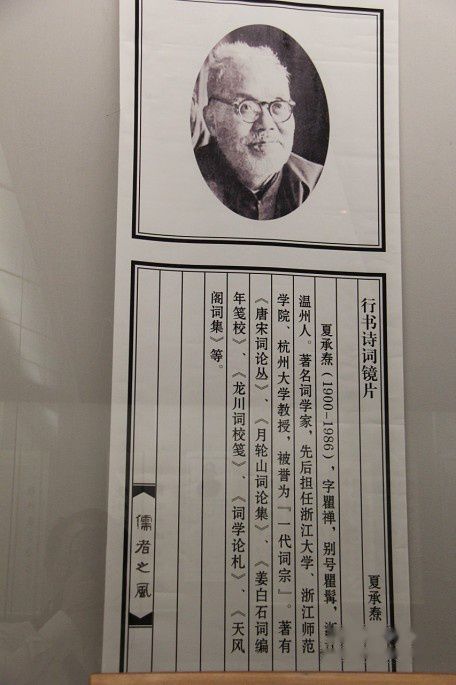 行书诗词镜片
夏承焘
夏承焘(1900-1986),字瞿禅,别号瞿髯,浙江
温州人。著名词学家,先后担任浙江大学、浙江师范
学院、杭州大学教授,被誉为『一代词宗』。著有
《唐宋词论丛》、《月轮山词论集》、《姜白石词编
年笺校》、《龙川词校笺》、《词学论札》、《天风
阁词集》等。
儒者之风